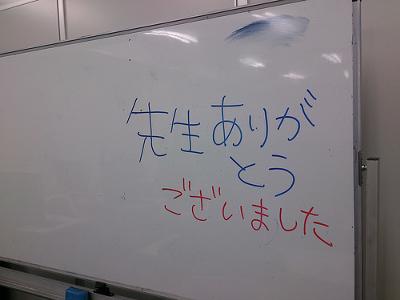 先生ありが
とう
ございました